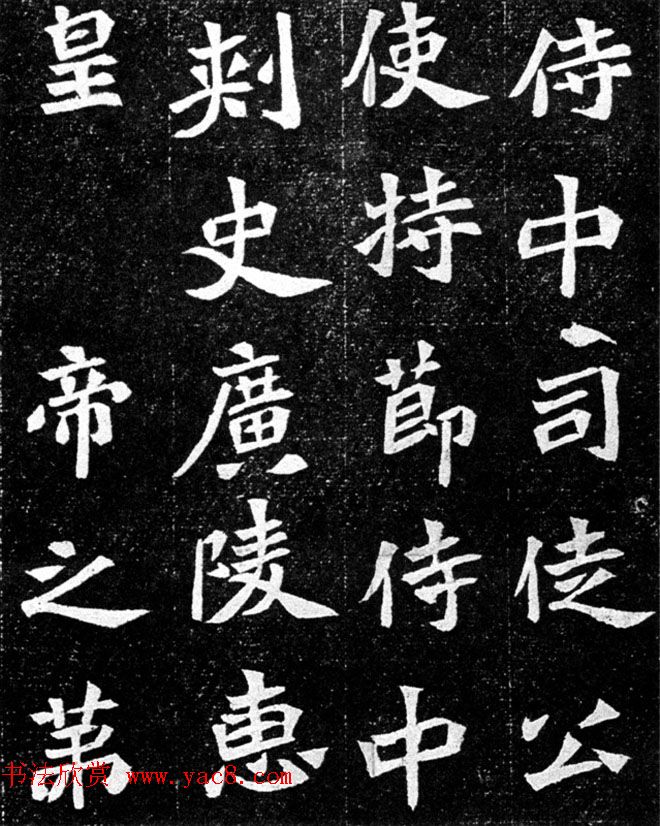 侍中司徒公
使持節侍中
刺史廣陵惠
皇帝之第
书法欣赏 www.yac8.com